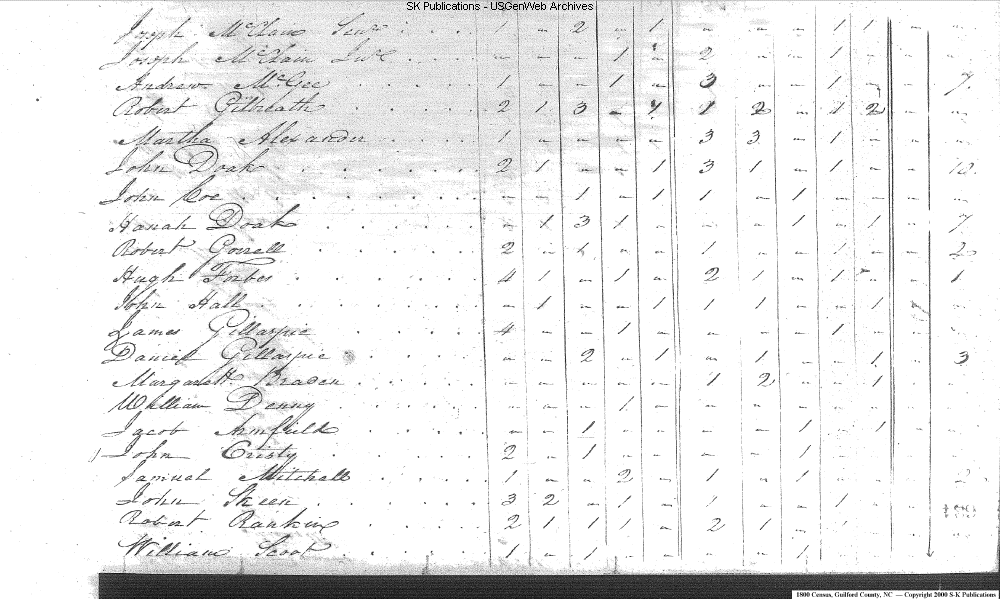 SK Publications - USGenWeb Archives
Joseph McClain Senr . . . . 1 - 2 - 1 - - - 1 1 -
Joseph McClain Jur . . . . - - - 1 - 2 - - 1 - -
Andrew McGee . . . . 1 - - 1 - 3 - - 1 - 7
Robert Gilreath . . . . 2 1 3 - 1 2 - 1 2 -
Martha Alexander . . . 1 - - - - 3 3 - 1 - -
John Doak . . . . . . 2 1 - - 1 3 1 - 1 - 10
John Coe . . . . . . - - 1 - 1 1 - 1 - - -
Hanah Doak . . . . . - 1 3 1 - - - 1 - 1 7
Robert Gorrell . . . . . 2 - - - 1 - - 1 - 2
Hugh Forbes . . . . . 4 1 - 1 - 2 1 - 1 - 1
John Hall . . . . . - 1 - - 1 1 1 - - 1 -
James Gillaspie . . . . 4 - - 1 - - - - 1 - -
Daniel Gillaspie . . . . - - 2 - 1 - 1 - - 1 3
Margarett Braden . . . . - - - - - 1 2 - - 1 -
William Denny . . . . . - - - 1 - - - - - - -
Jacob Armfield . . . . - - 1 - - - - 1 - 1 -
John Cristy . . . . . 2 - 1 - - - - 1 - - -
Samuel Mitchell . . . . 1 - - 2 - 1 - 1 - - 2
John Skeen . . . . . 3 2 - 1 - 1 - - 1 - -
Robert Rankin . . . . . 2 1 1 1 - 2 1 - 1 -
William Scoot . . . . . 1 - 1 - - - - 1 - -
1800 Census, Guilford County, NC — Copyright 2000 S-K Publications